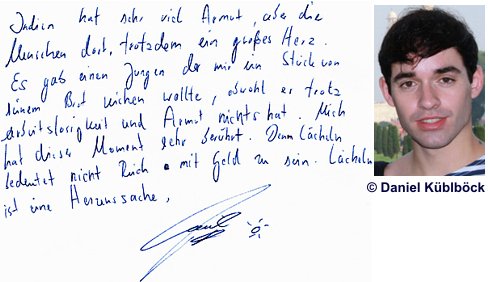 Indien hat sehr viel Armut, aber die
Menschen dort, trotzdem ein großes Herz.
Es gab einen Jungen der mir ein Stück von
seinem Brot reichen wollte, obwohl er trotz
Arbeitslosigkeit und Armut nichts hat. Mich
hat dieser Moment sehr berührt. Denn Lächeln
bedeutet nicht Reich mit Geld zu sein. Lächeln
ist eine Herzenssache,
© Daniel Küblböck